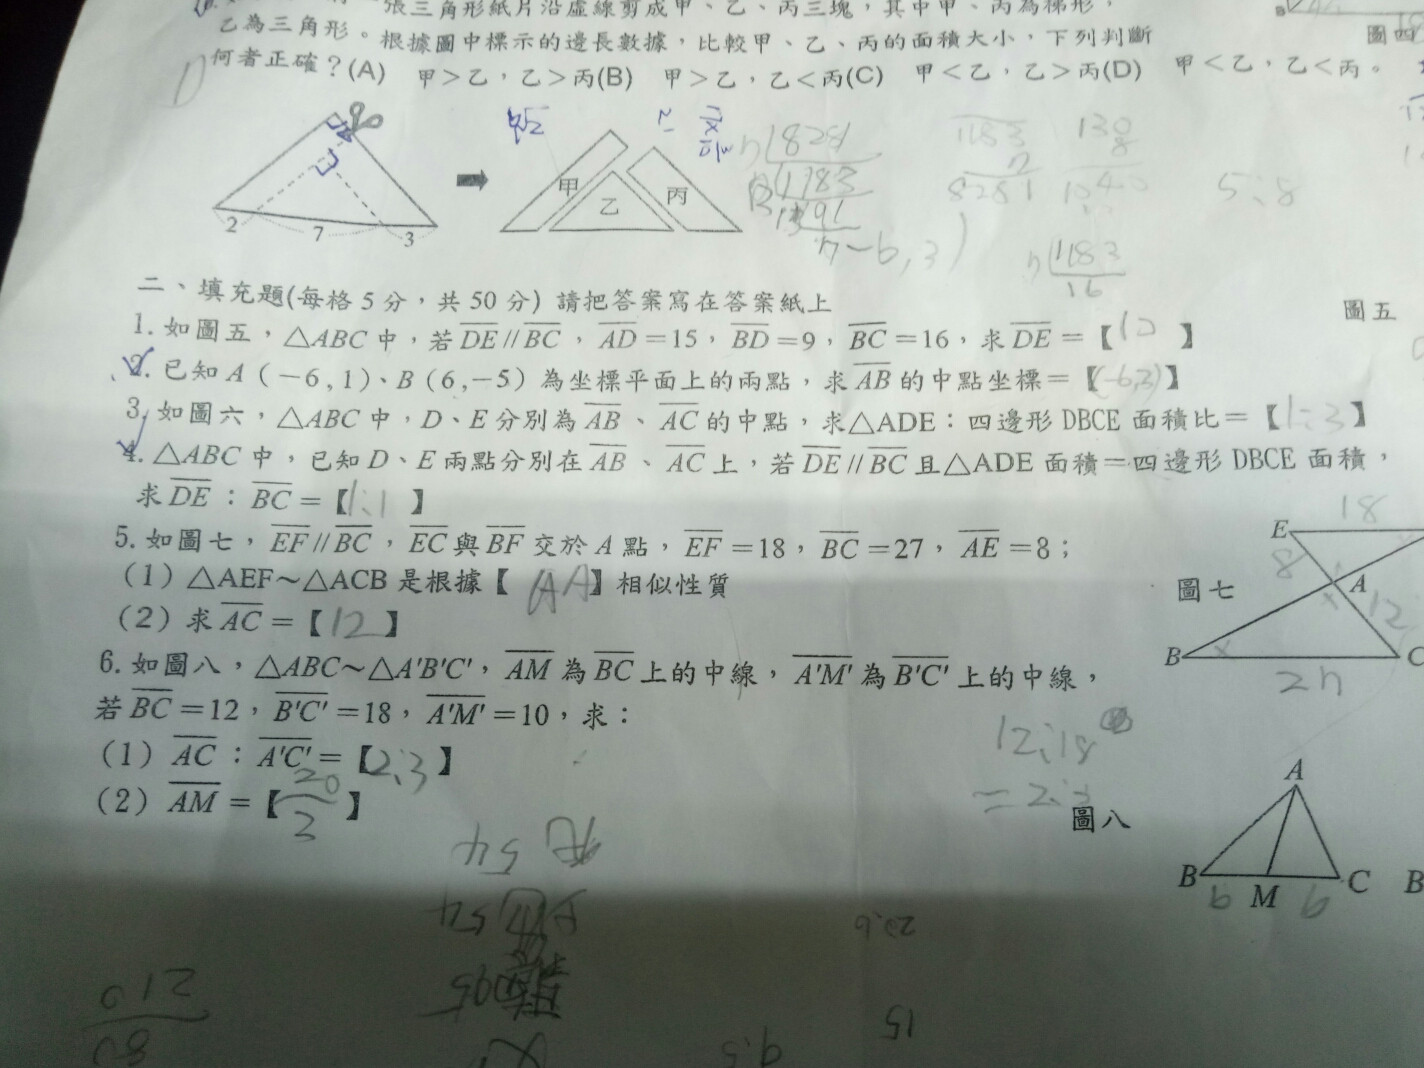 張三角形紙片沿虛線剪成甲、乙、丙三塊，其中甲、丙為梯形，
乙為三角形。根據圖中標示的邊長數據，比較甲、乙、丙的面積大小，下列判斷
何者正確？(A) 甲＞乙，乙＞丙(B) 甲＞乙，乙＜丙(C) 甲＜乙，乙＞丙(D) 甲＜乙，乙＜丙。
圖四
D
2 7 3
甲 乙 丙
5:8
二、填充題(每格 5 分，共 50 分) 請把答案寫在答案紙上
圖五
1. 如圖五，△ABC 中，若 DE // BC，AD＝15，BD＝9，BC＝16，求 DE＝【10】
2. 已知 A（－6, 1）、B（6, －5）為坐標平面上的兩點，求 AB 的中點坐標＝【(-6,3)】
3. 如圖六，△ABC 中，D、E 分別為 AB、AC 的中點，求△ADE：四邊形 DBCE 面積比＝【1:3】
4. △ABC 中，已知 D、E 兩點分別在 AB、AC 上，若 DE // BC 且△ADE 面積＝四邊形 DBCE 面積，
求 DE：BC＝【1:1】
5. 如圖七，EF // BC，EC 與 BF 交於 A 點，EF＝18，BC＝27，AE＝8；
(1) △AEF～△ACB 是根據【AA】相似性質
(2) 求 AC＝【12】
圖七
E 18
8 A 12
B C
27
6. 如圖八，△ABC～△A'B'C'，AM 為 BC 上的中線，A'M' 為 B'C' 上的中線，
若 BC＝12，B'C'＝18，A'M'＝10，求：
(1) AC：A'C'＝【2:3】
(2) AM＝【20/3】
12:18
=2:3
圖八
A
B M C
6 6
B